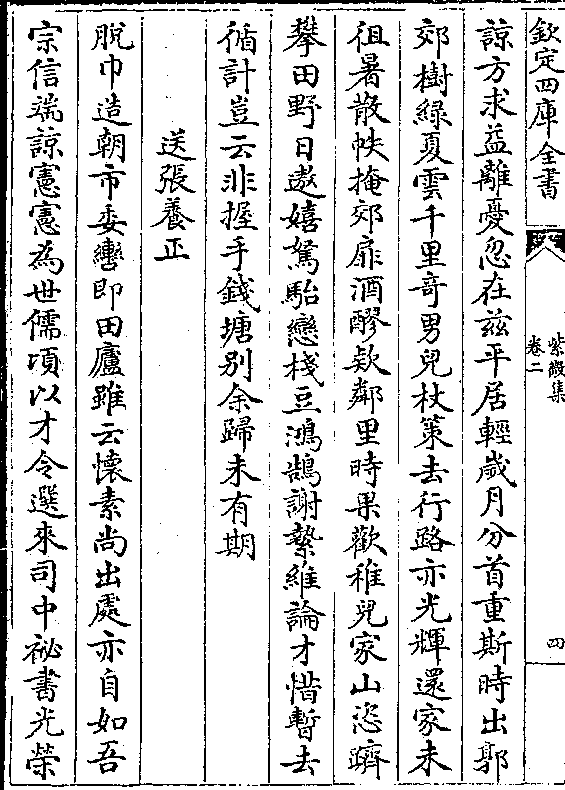 欽定四庫全書
紫微集
卷二
四
諒方求益離憂忽在兹平居輕歲月分首重斯時出郭
郊樹綠夏雲千里竒男兒杖策去行路亦光輝還家未
徂暑散帙掩郊扉酒醪欵鄰里時果歡稚兒家山恣躋
攀田野日遨嬉駑駘戀棧豆鴻鵠謝縶維論才惜暫去
循計豈云非握手錢塘别余歸未有期
送張養正
脫巾造朝市委轡即田廬雖云懷素尚出處亦自如吾
宗信端諒憲憲為世儒頃以才令選來司中祕書光榮